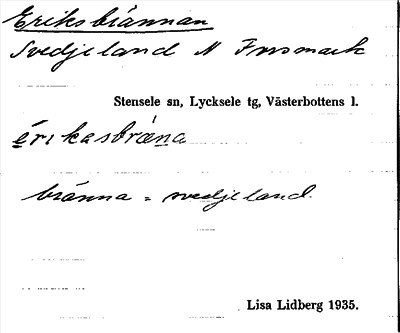 Eriksbrännan
Svedjeland N Forsmark
Stensele sn, Lycksele tg, Västerbottens l.
érikasbræna
bränna = svedjeland.
Lisa Lidberg 1935.